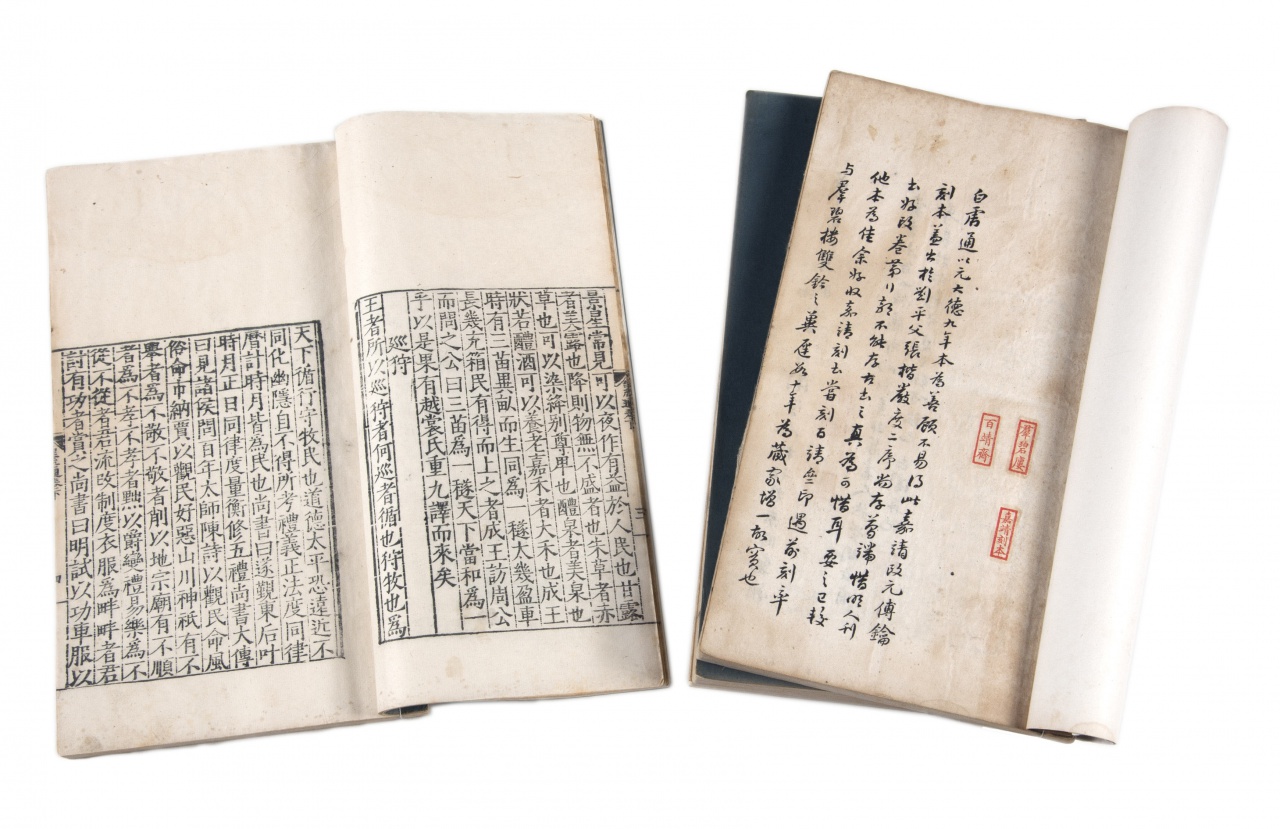 景星常見可以夜作有益於人民也甘露
者美露也降則物無不盛者也朱草者赤
草也可以染絳別尊卑也醴泉者美泉也
狀若醴酒可以養老嘉禾者大禾也成王
時有三苗異畝而生同為一穟太幾盈車
長幾充箱民有得而上之者成王訪周公
而問之公曰三苗為一穟天下當和為一
乎以是果有越裳氏重九譯而來矣
巡狩
王者所以巡狩者何巡者循也狩牧也為
天下循行守牧民也道德太平恐遠近不
同化幽隱自不得所考禮義正法度同律
曆計時月皆為民也尚書曰遂觀東后叶
時月正日同律度量衡修五禮尚書大傳
曰見諸侯問百年太師陳詩以觀民命風
俗命市納賈以觀民好惡山川神祇有不
舉者為不敬不敬者削以地宗廟有不順
者為不孝不孝者黜以爵變禮易樂為不
從不從者君流改制度衣服為畔畔者君
討有功者賞之尚書曰明試以功車服以
羣碧廔
嘉靖刻本
百靖齋
白虎通以元大德九年本為善顧不易得此嘉靖改元傅鑰
刻本蓋出於劉平父張楷嚴度二序尚存首端惜明人刊
書好改卷第行款不能存古書之真為可惜耳要之已較
他本為佳余好收嘉靖刻書嘗刻百靖齋印遇前刻平
与羣碧樓雙鈐之冀十年為藏家增一故實也